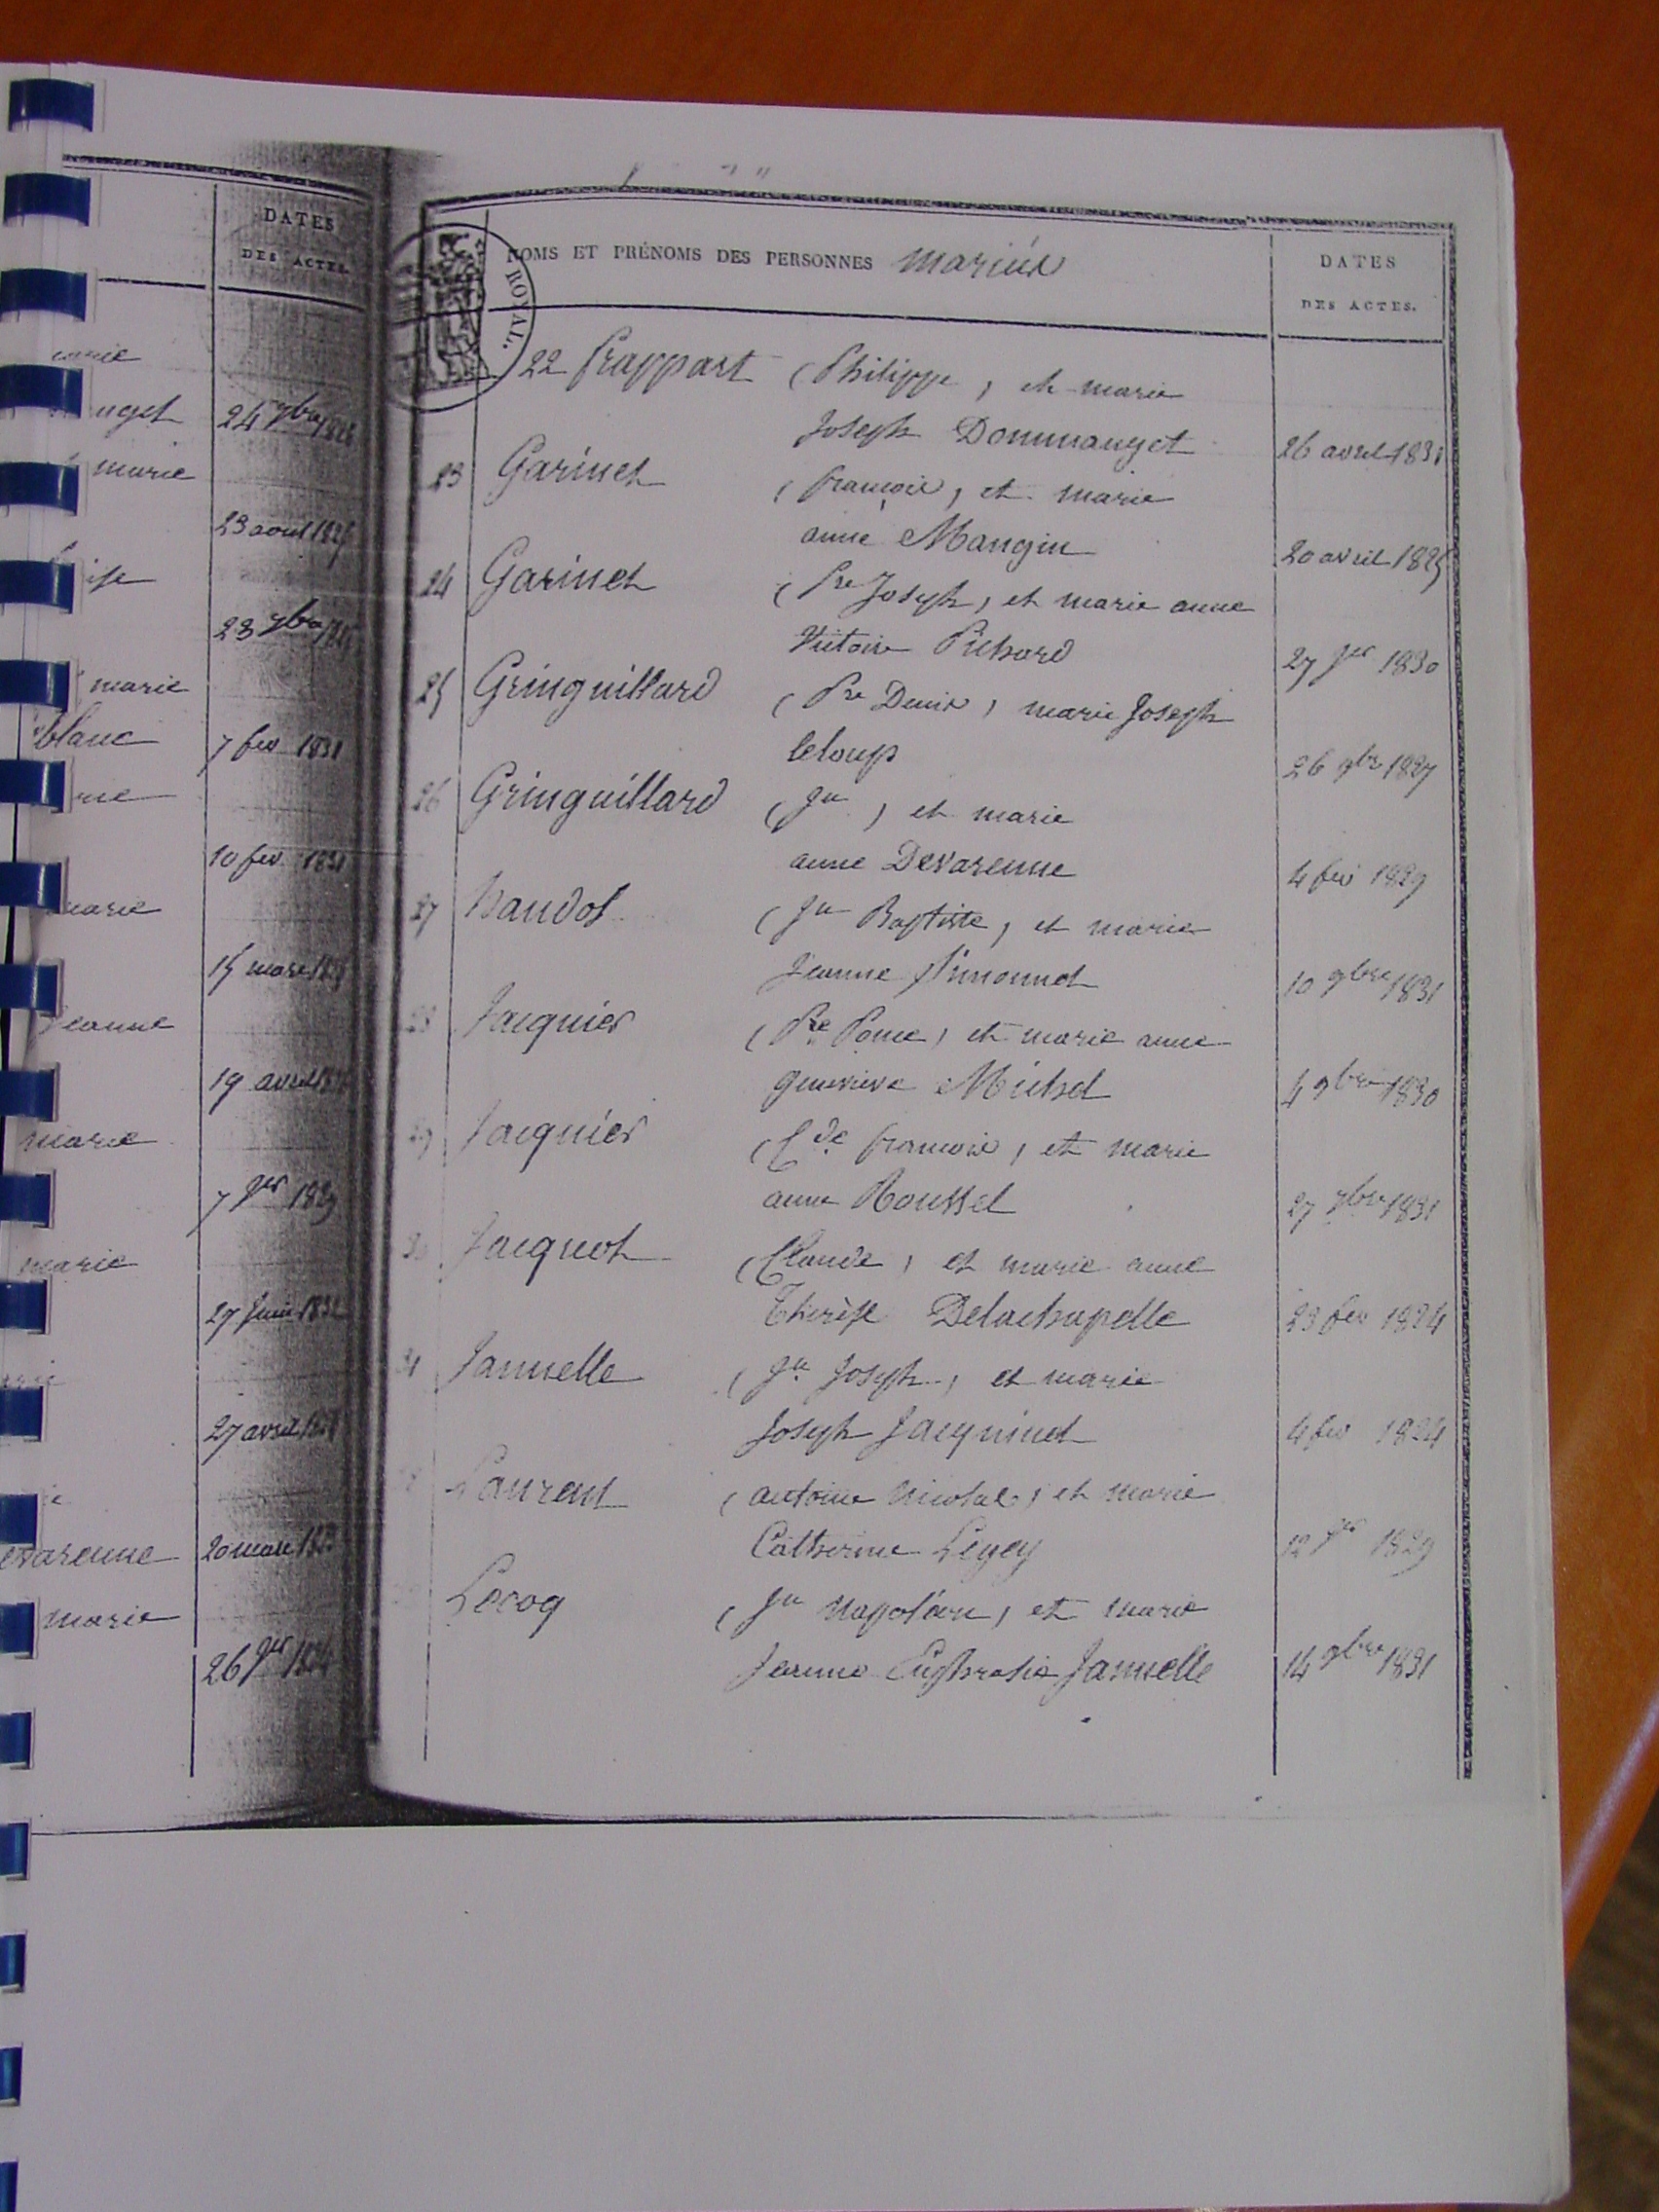 DATES
DES ACTES.
uget 24 7bre 1826
marie
23 aout 182
marie
blanc 7 fev 1831
10 fev 1831
15 mars
Jeanne
19 avril
marie
7 jer 1829
marie
27 juin 1832
27 avril
evarenne 20 mars
marie
26 jer
ROYAL.
NOMS ET PRÉNOMS DES PERSONNES mariés
DATES
DES ACTES.
22 frappart (Philippe, et marie
Joseph Dommanget 26 avril 1831
23 Garinet (françois, et marie
anne Mangin 20 avril 1825
24 Garinet (Pre Joseph, et marie anne
Victoire Pichard 27 jer 1830
25 Gringuillard (Pre Denis, marie Joseph
leloup 26 9bre 1827
26 Gringuillard (Jn ) et marie
anne Devarenne 4 fev 1829
27 handot (Jn Baptiste, et marie
Jeanne Simonnet 10 9bre 1831
28 Jacquier (Pre Ponce, et marie anne
genevieve Michel 4 9bre 1830
29 Jacquier (Cde francois, et marie
anne Roussel 27 7bre 1831
30 Jacquot (Claude, et marie anne
Therèse Delachapelle 23 fev 1824
31 Jannelle (Jn Joseph, et marie
Joseph Jacquinet 4 fev 1824
Laurent (antoine Nicolas, et marie
Catherine Legey 12 jer 1829
Lecoq (Jn Napoléon, et marie
Jeanne Euphrasie Jannelle 14 9bre 1831